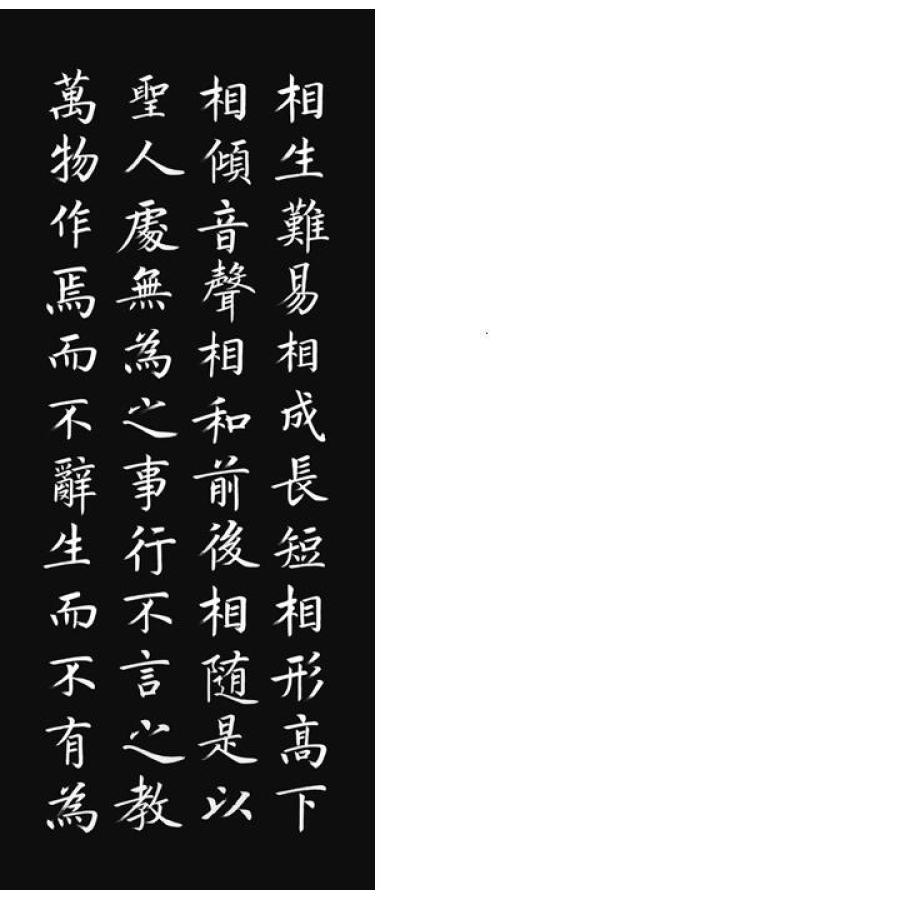 相生難易相成長短相形高下
相傾音聲相和前後相随是以
聖人處無為之事行不言之教
萬物作焉而不辭生而不有為